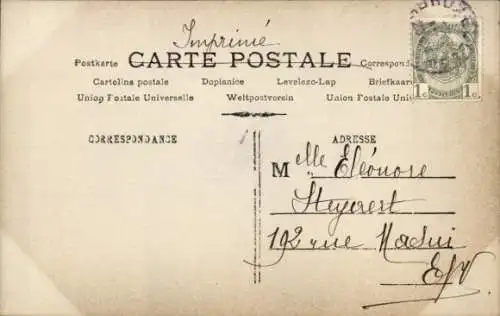 Imprimé
Postkarte CARTE POSTALE Correspond
Cartolina postale Dopisnice Levelezo-Lap Briefkaar
Union Postale Universelle Weltpostverein Union Postale Uni
1c 1c
CORRESPONDANCE
ADRESSE
Mlle Eléonore
Steyaert
192 rue Masui
E/V